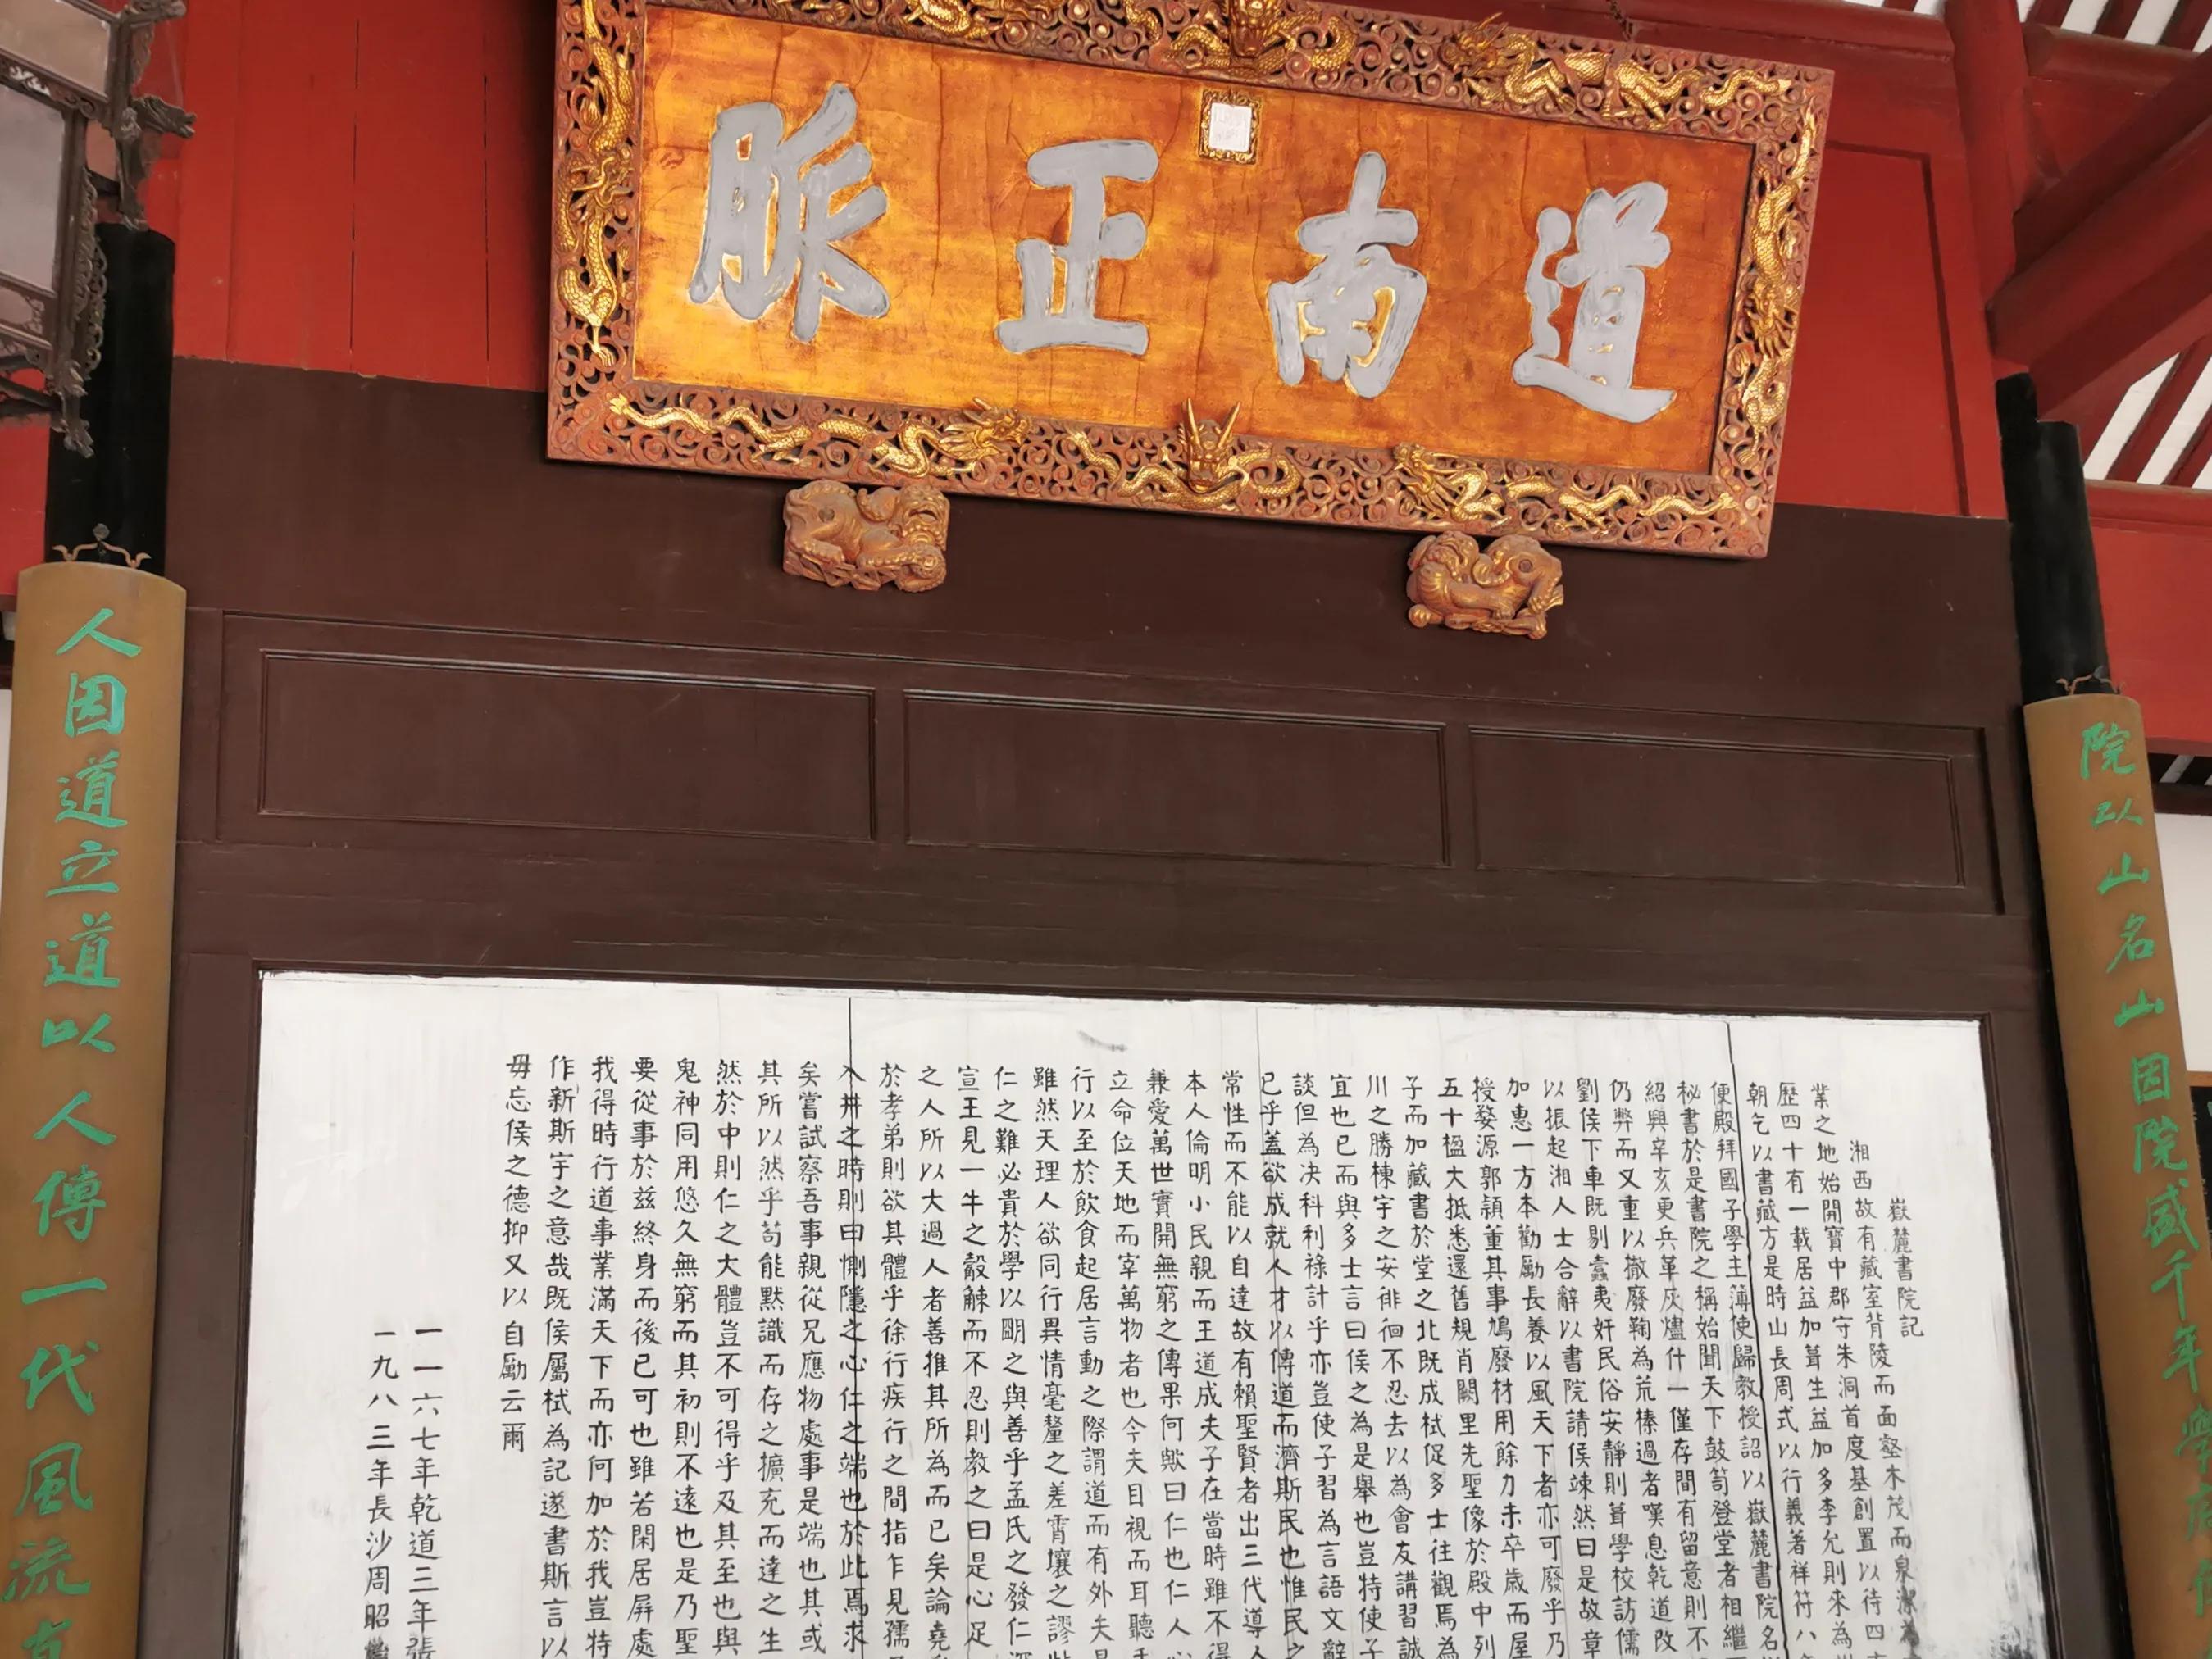 道南正脈
院以山名山因院盛千年學府
人因道立道以人傳一代風流
嶽麓書院記
湘西故有藏室背陵而面壑木茂而泉潔為
業之地始開寶中郡守朱洞首度基創置以待四
歷四十有一載居益加葺生益加多李允則來為
朝乞以書藏方是時山長周式以行義著祥符八
便殿拜國子學主薄使歸教授詔以嶽麓書院名
秘書於是書院之稱始聞天下鼓笥登堂者相繼
紹興辛亥更兵革灰燼什一僅存間有留意則不
仍弊而又重以撤廢鞠為荒榛過者嘆息乾道改
劉侯下車既剔蠹夷奸民俗安靜則葺學校訪儒
以振起湘人士合辭以書院請侯竦然曰是故章
加惠一方本勸勵長養以風天下者亦可廢乎乃
授婺源郭穎董其事鳩廢材用餘力未卒歲而屋
五十楹大抵悉還舊規肖闕里先聖像於殿中列
子而加藏書於堂之北既成栻促多士往觀焉為
川之勝棟宇之安徘徊不忍去以為會友講習誠
宜也已而與多士言曰侯之為是舉也豈特使子
談但為决科利祿計乎亦豈使子習為言語文辭
已乎蓋欲成就人才以傳道而濟斯民也惟民之
常性而不能以自達故有賴聖賢者出三代導人
本人倫明小民親而王道成夫子在當時雖不得
兼愛萬世實開無窮之傳果何歟曰仁也仁人心
立命位天地而宰萬物者也今夫目視而耳聽
行以至於飲食起居言動之際謂道而有外夫
雖然天理人欲同行異情毫釐之差霄壤之謬
仁之難必貴於學以明之與善乎孟氏之發仁深
宣王見一牛之觳觫而不忍則教之曰是心足
之人所以大過人者善推其所為而已矣論堯
於孝弟則欲其體乎徐行疾行之間指乍見孺
入井之時則曰惻隱之心仁之端也於此焉求
矣嘗試察吾事親從兄應物處事是端也其或
其所以然乎苟能默識而存之擴充而達之生
然於中則仁之大體豈不可得乎及其至也與
鬼神同用悠久無窮而其初則不遠也是乃聖
要從事於茲終身而後已可也雖若閑居屏處
我得時行道事業滿天下而亦何加於我豈特
作新斯宇之意哉既侯屬栻為記遂書斯言以
毋忘侯之德抑又以自勵云爾
一一六七年乾道三年張
一九八三年長沙周昭